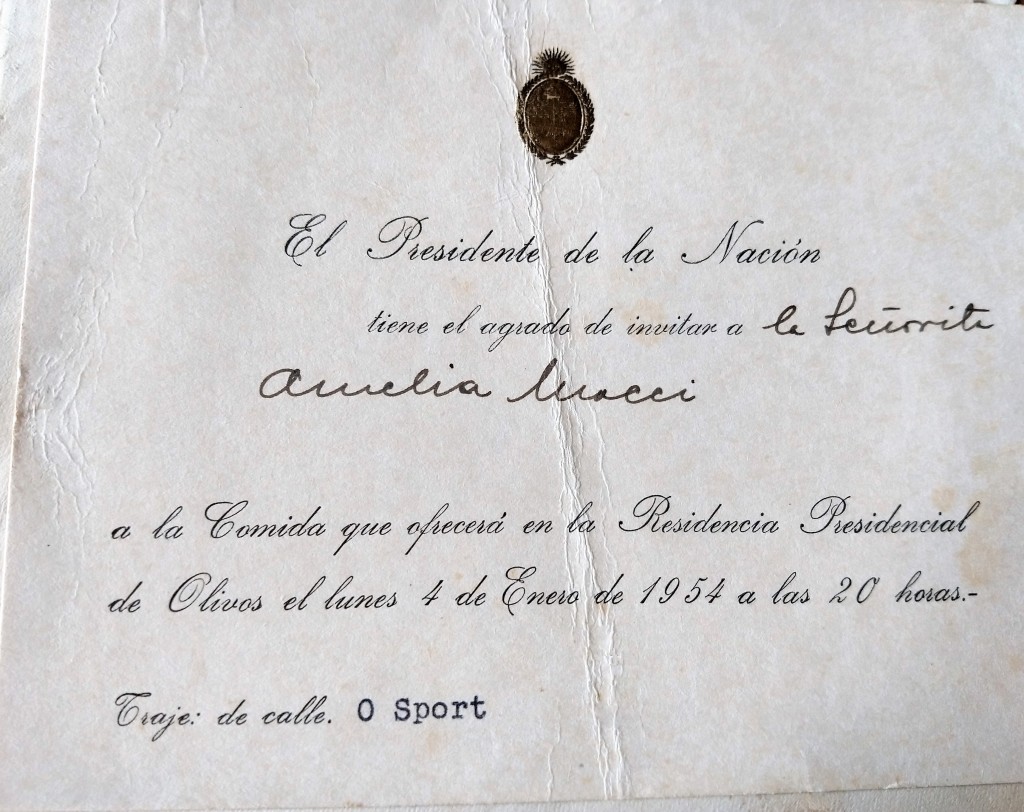 El Presidente de la Nación
tiene el agrado de invitar a la Señorita
Amelia Mocci
a la Comida que ofrecerá en la Residencia Presidencial
de Olivos el lunes 4 de Enero de 1954 a las 20 horas.-
Traje: de calle. O Sport